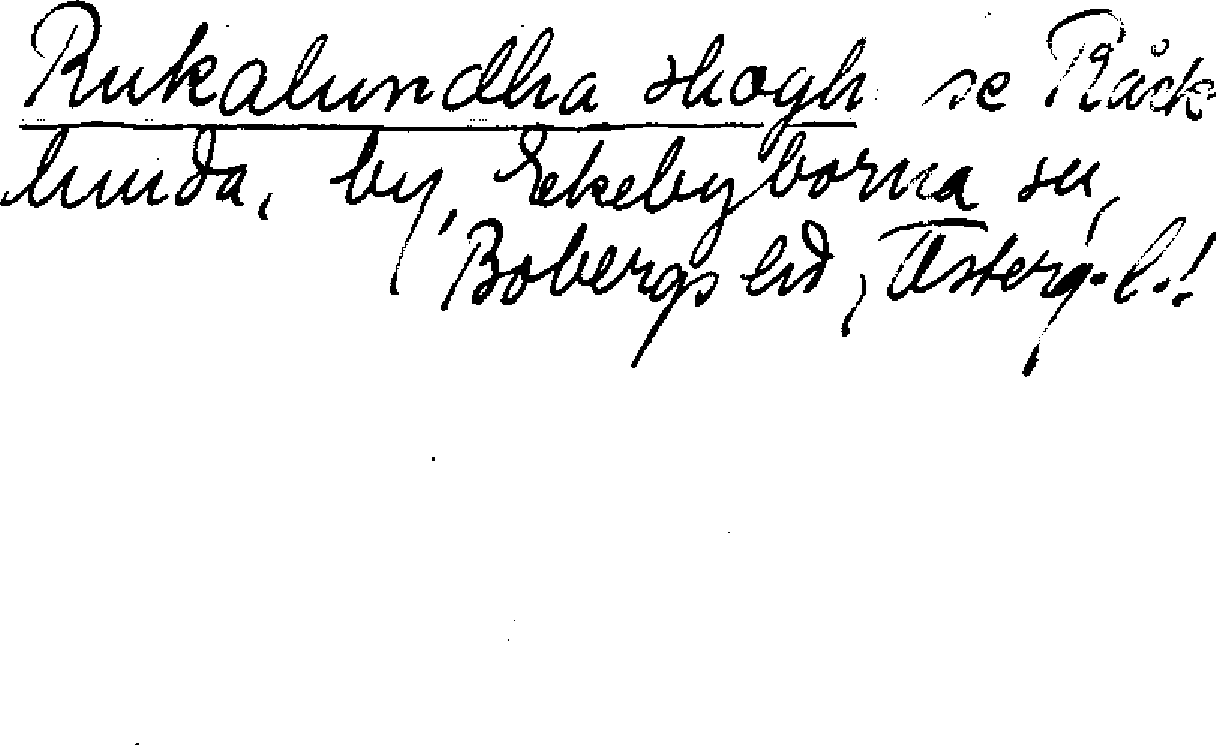 Rukalundha skogh se Råck
lunda, by, Ekebyborna sn,
Bobergs hd, Östergl.!